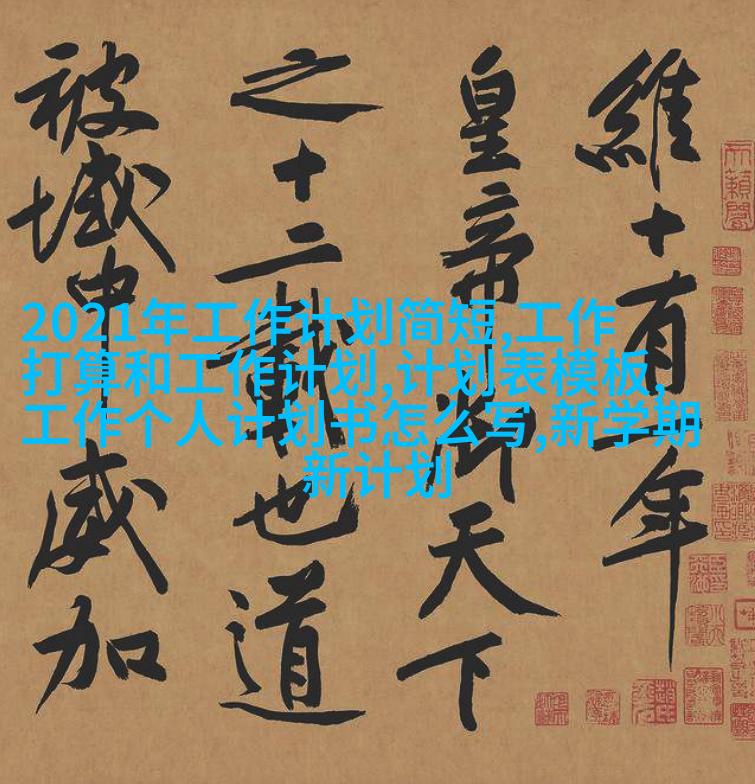 維十有一年
皇帝御天下
之十二載也道
被域中威加
2021年工作计划简短,工作
打算和工作计划,计划表模板,
工作个人计划书怎么写,新学期
新计划